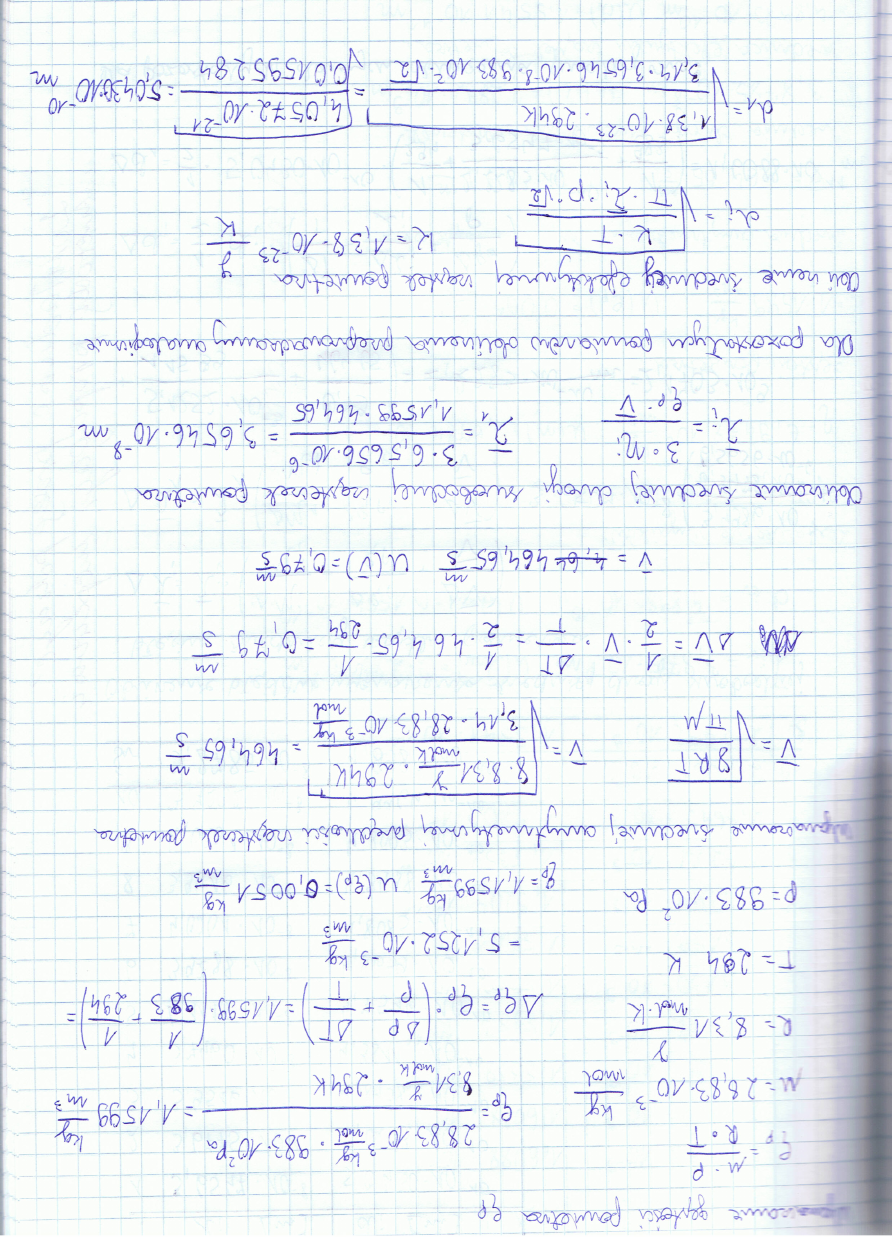 Wyznaczanie gęstości powietrza ρp
ρp = M·p / R·T    ρp = 28,83·10⁻³ kg/mol · 983·10² Pa / 8,31 J/mol·K · 294K = 1,1599 kg/m³
M = 28,83·10⁻³ kg/mol
R = 8,31 J/mol·K    Δρp = ρp·(Δp/p + ΔT/T) = 1,1599·(1/983 + 1/294) =
T = 294 K    = 5,1252·10⁻³ kg/m³
p = 983·10² Pa    ρp = 1,1599 kg/m³  u(ρp) = 0,0051 kg/m³
Wyznaczanie średniej arytmetycznej prędkości cząsteczek powietrza
V̄ = √(8RT / πM)    V̄ = √(8·8,31 J/mol·K · 294K / 3,14·28,83·10⁻³ kg/mol) = 464,65 m/s
ΔV̄ = 1/2 · V̄ · ΔT/T = 1/2 · 464,65 · 1/294 = 0,79 m/s
V̄ = 464,65 m/s  u(V̄) = 0,79 m/s
Obliczanie średniej drogi swobodnej cząsteczek powietrza
λ̄i = 3·ηi / ρp·V̄    λ̄1 = 3·6,5656·10⁻⁶ / 1,1599·464,65 = 3,6546·10⁻⁸ m
Dla pozostałych pomiarów obliczenia przeprowadzamy analogicznie
Obliczenie średnicy efektywnej cząstek powietrza
di = √(K·T / π·λ̄i·p·√2)    K = 1,38·10⁻²³ J/K
d1 = √(1,38·10⁻²³·294K / 3,14·3,6546·10⁻⁸·983·10²·√2) = √(4,0572·10⁻²¹ / 0,01595284) = 5,0430·10⁻¹⁰ m